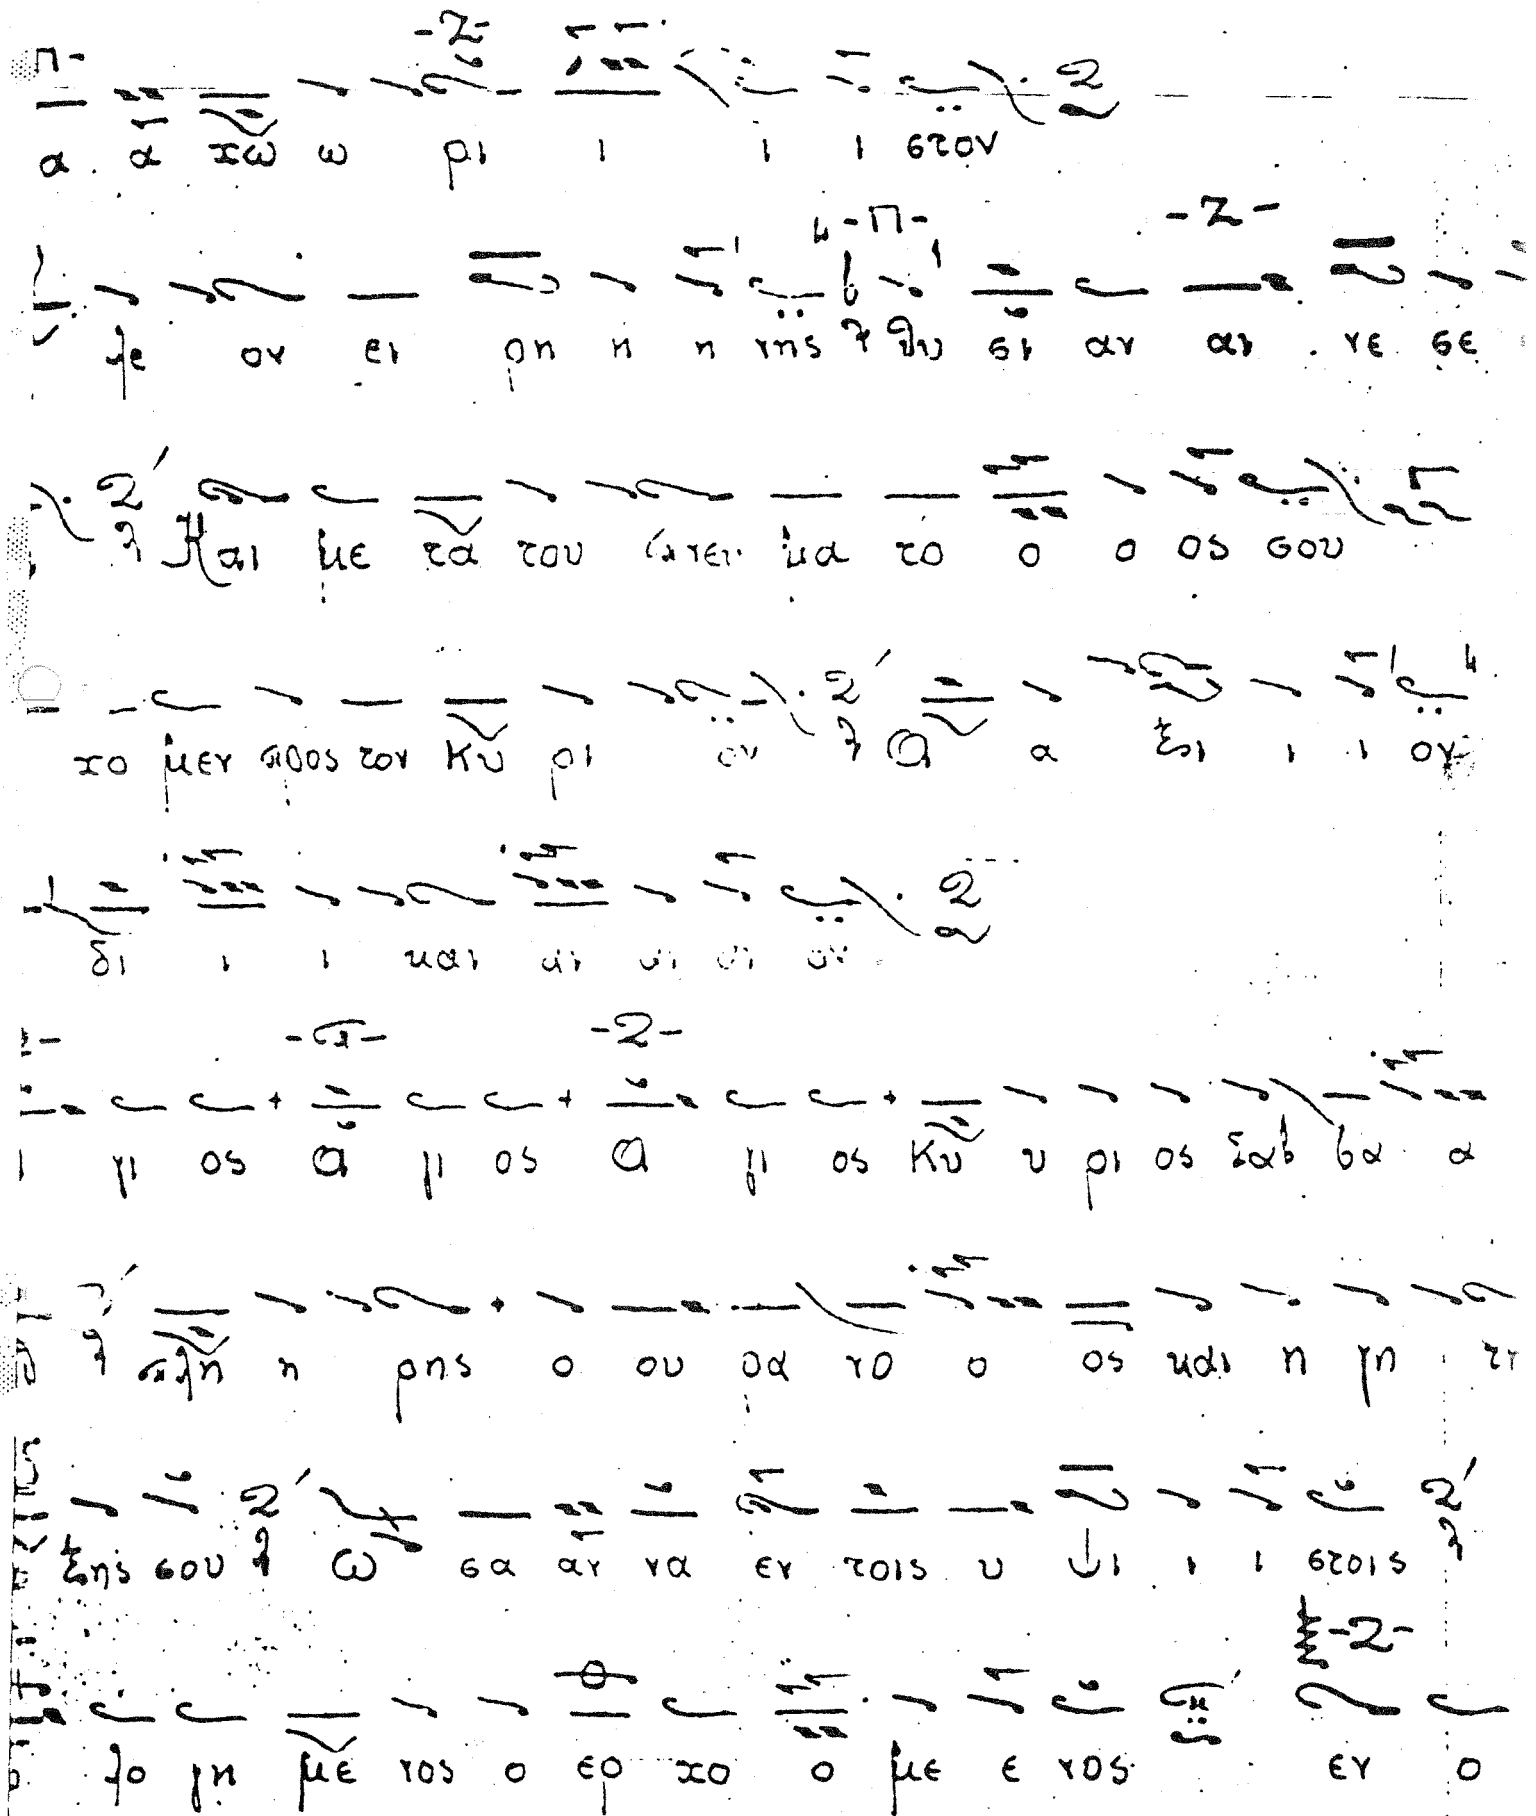 α α χω ω ρι ι ι ι στον
λε ον ει ρη η η νης θυ σι αν αι νε σε
Και με τα του πνευ μα το ο ο ος σου
χο μεν προς τον Κυ ρι ον Α α ξι ι ι ον
δι ι ι και αι αι αι ον
ι γι ος Α γι ος Α γι ος Κυ υ ρι ος Σαβ βα α
πλη η ρης ο ου ρα νο ο ος και η γη τη
ξης σου ω σα αν να εν τοις υ ψι ι ι στοις
λο γη με νος ο ερ χο ο με ε νος εν ο